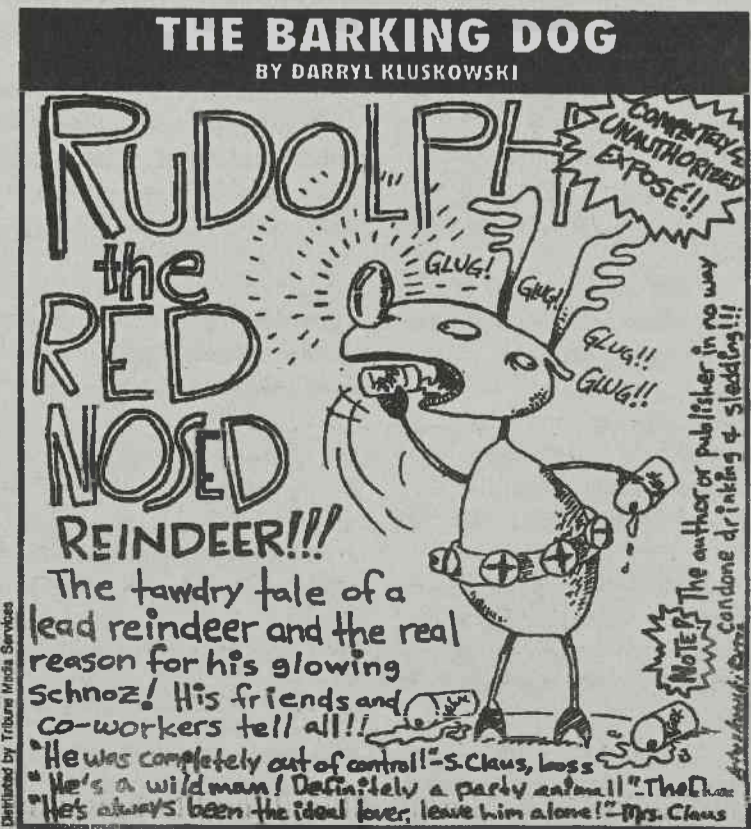 THE BARKING DOG
BY DARRYL KLUSKOWSKI
RUDOLPH
the
RED
NOSED
REINDEER!!!
COMPLETELY
UNAUTHORIZED
EXPOSÉ!!
GLUG!
GLUG!
GLUG!!
GLUG!!
The tawdry tale of a
lead reindeer and the real
reason for his glowing
Schnoz! His friends and
co-workers tell all!!
"He was completely out of control!"-S.Claus, boss
"He's a wildman! Definitely a party animal!"-The
"He's always been the ideal lover, leave him alone!"-Mrs. Claus
NOTE: The author or publisher in no way
condone drinking & sledding!!!
Distributed by Tribune Media Services